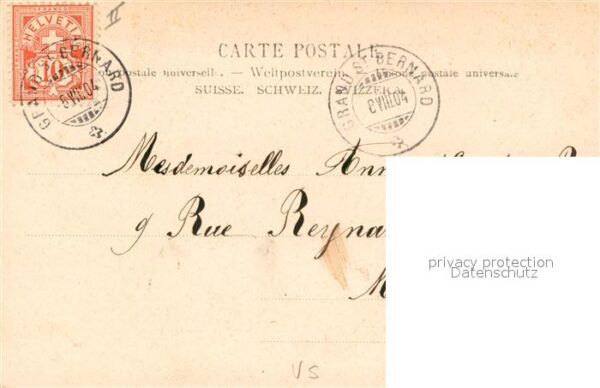 II
HELVETIA
FRANCO FRANCO
10
GRAND St BERNARD
8 VIII.04
GRAND St BERNARD
8 VIII.04
CARTE POSTALE
postale universelle. — Weltpostverein postale universale
SUISSE. SCHWEIZ. SVIZZERA.
Mesdemoiselles Ann
9 Rue Reyna
M
privacy protection
Datenschutz
VS